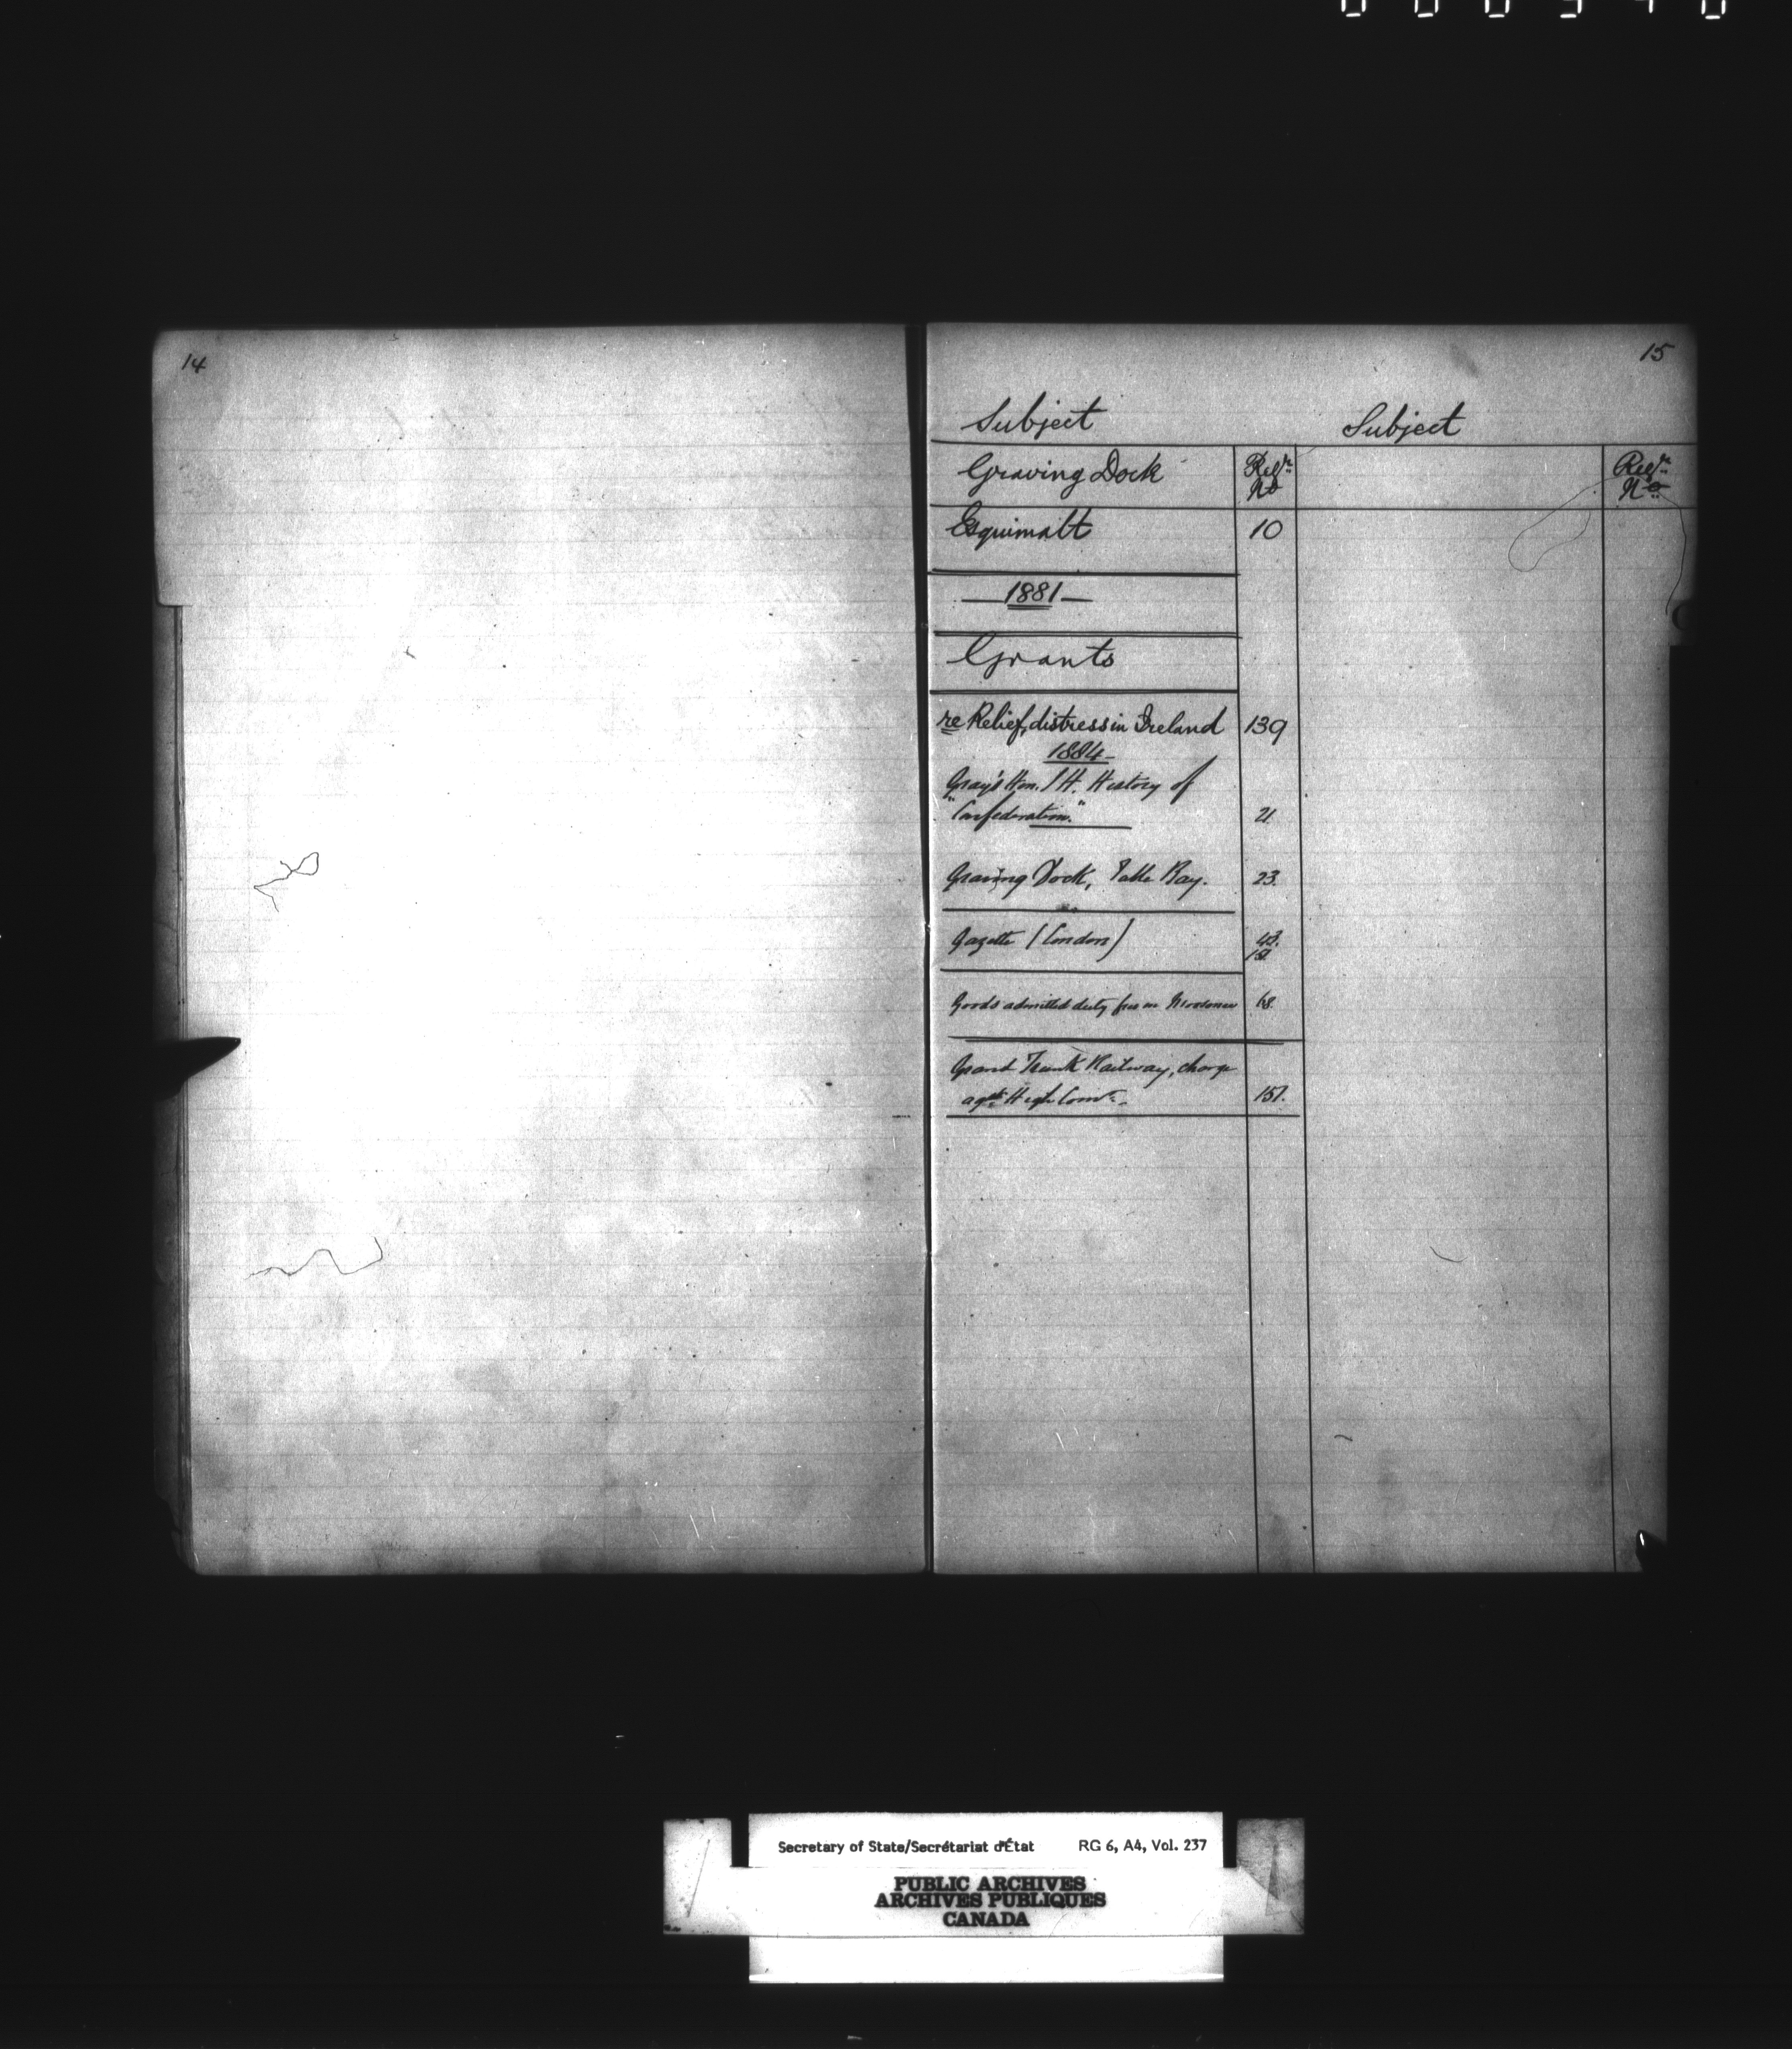 14
15
Subject
Subject
Graving Dock
Refce No
Refce No
Esquimalt 10
1881
Grants
re Relief, distress in Ireland 139
1884
Gray's Hon. J H. History of
"Confederation." 21.
Graving Dock, Table Bay. 23.
Gazette (London) 43.
Goods admitted duty free in 68.
Grand Trunk Railway, charge
agst High Comr. 157.
Secretary of State/Secrétariat d'État RG 6, A4, Vol. 237
PUBLIC ARCHIVES
ARCHIVES PUBLIQUES
CANADA